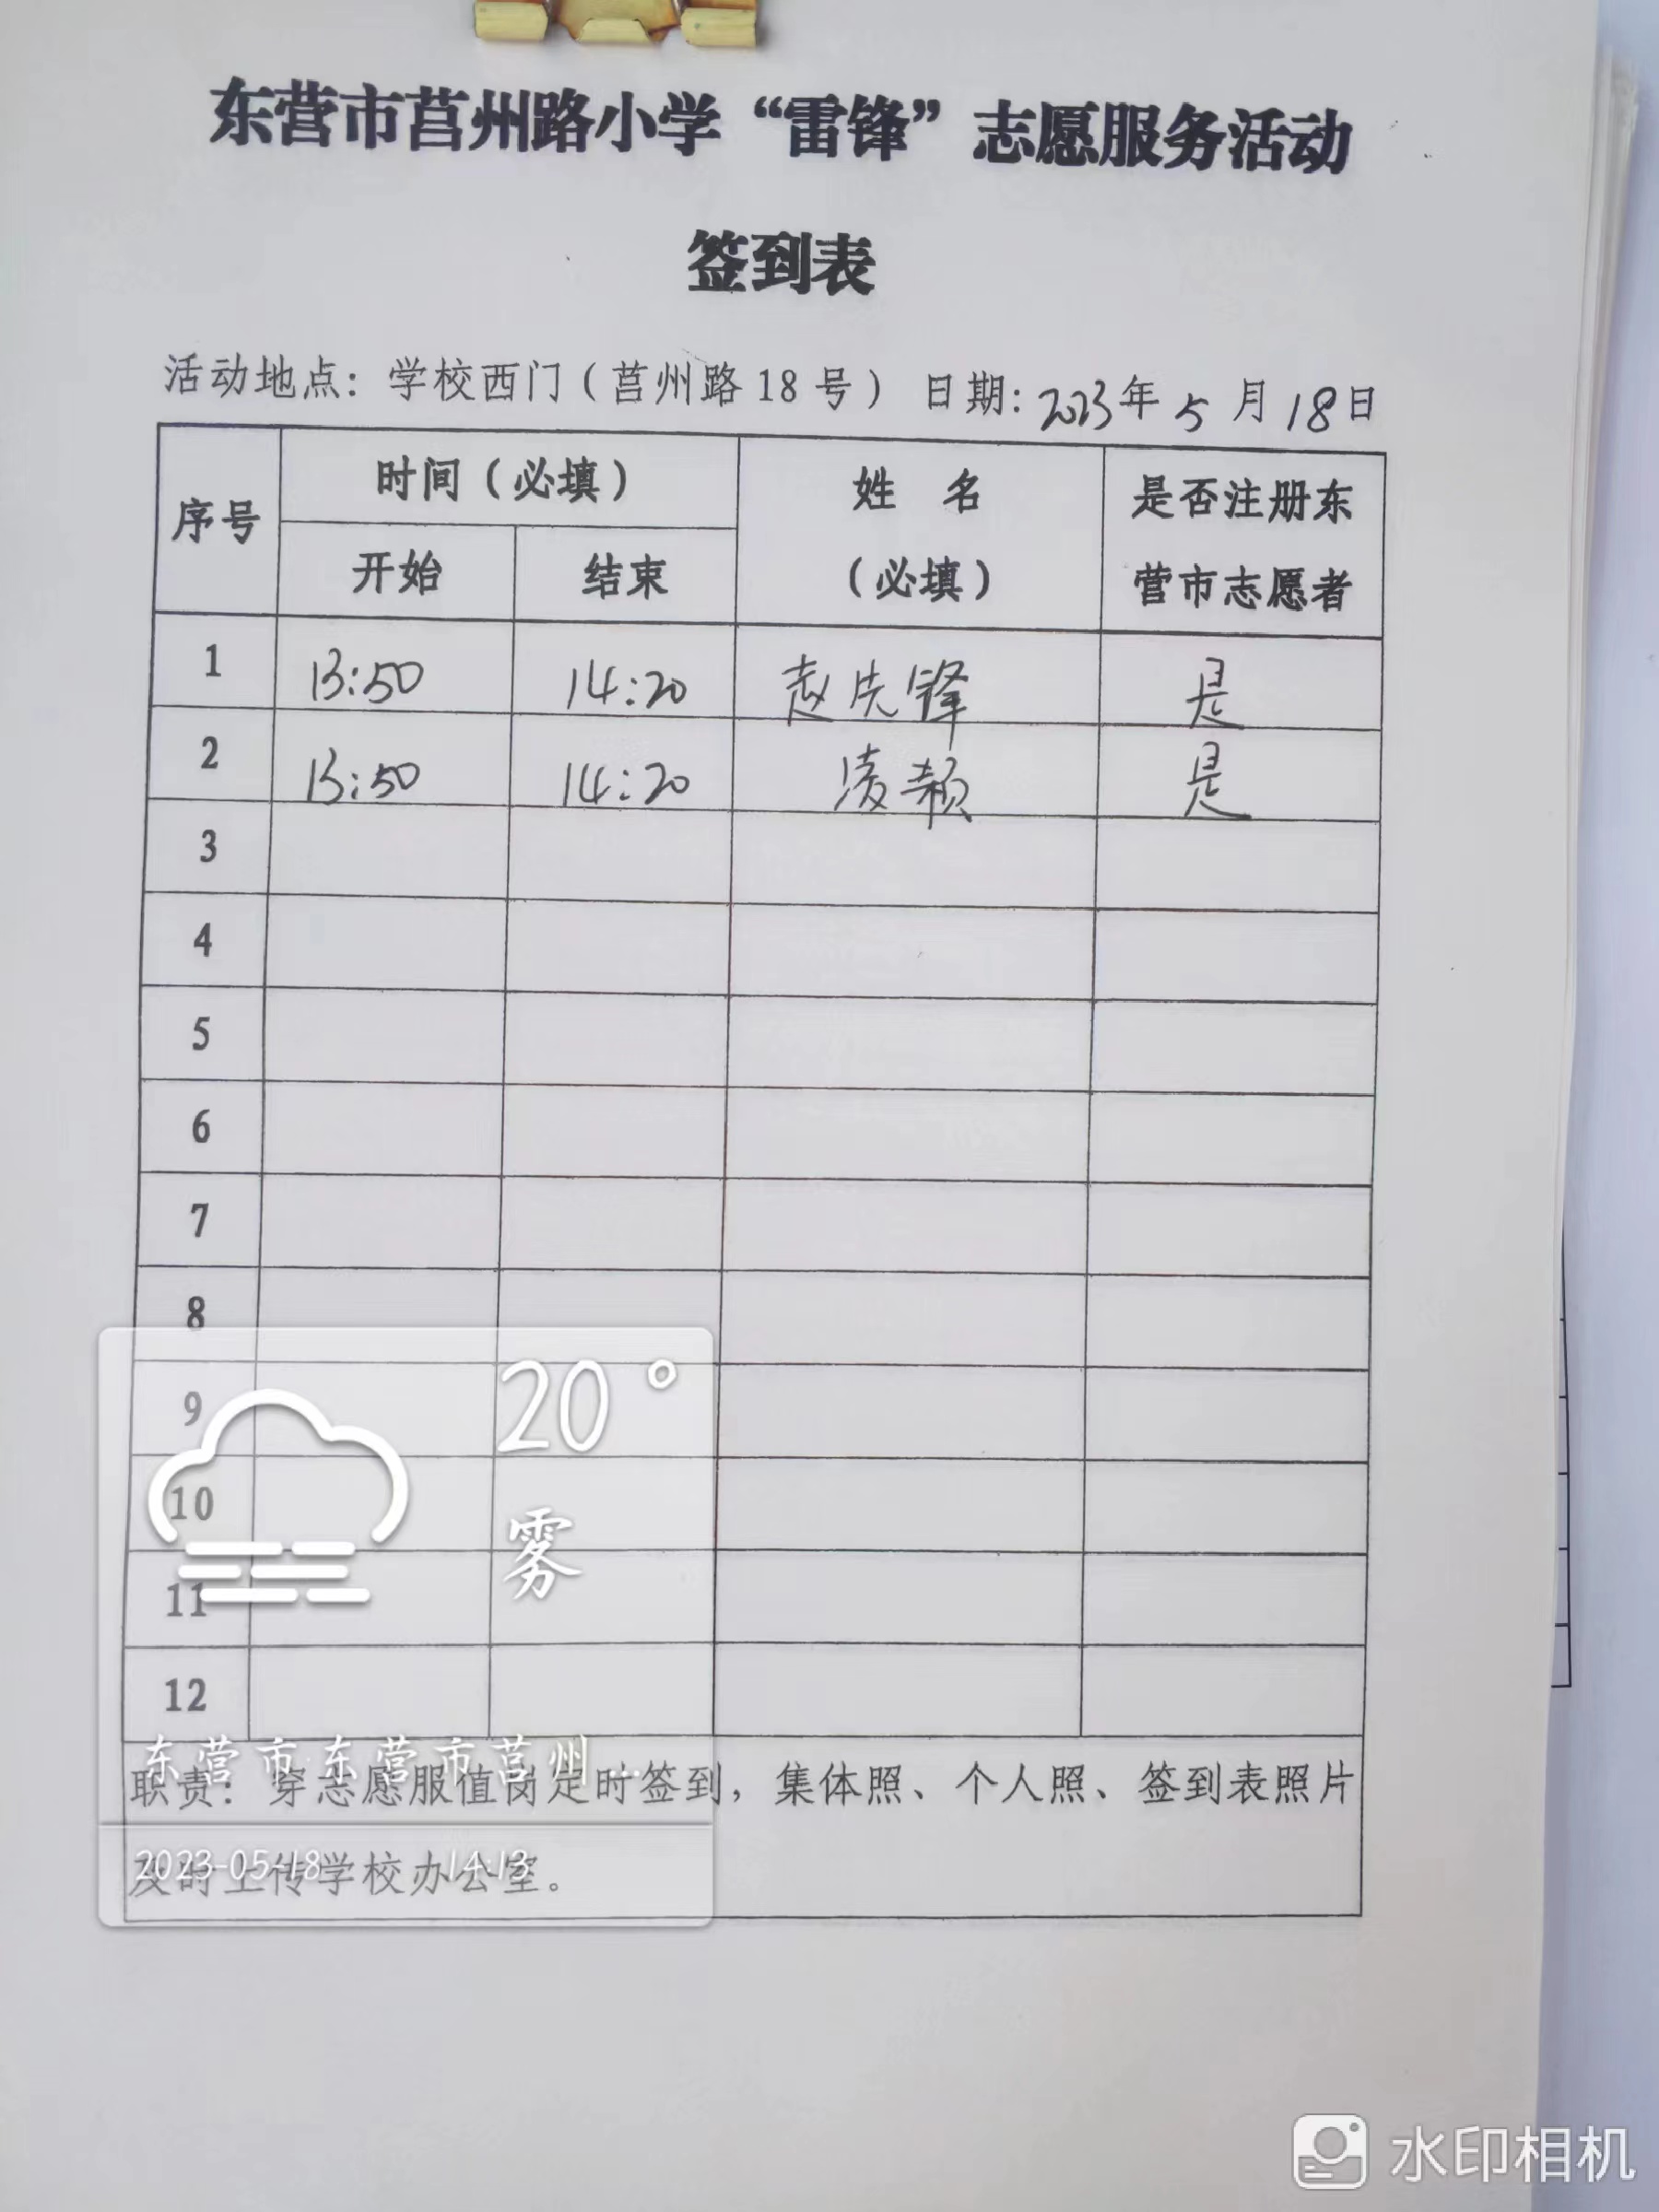 东营市莒州路小学“雷锋”志愿服务活动
签到表
活动地点：学校西门（莒州路18号） 日期：2023年5月18日
序号 时间（必填） 姓 名（必填） 是否注册东营市志愿者
开始 结束
1 13:50 14:20 赵先锋 是
2 13:50 14:20 凌颖 是
3
4
5
6
7
8
9
10
11
12
20°
雾
东营市·东营市莒州...
职责：穿志愿服值岗定时签到，集体照、个人照、签到表照片
2023-05-18 14:13
及时上传学校办公室。
水印相机